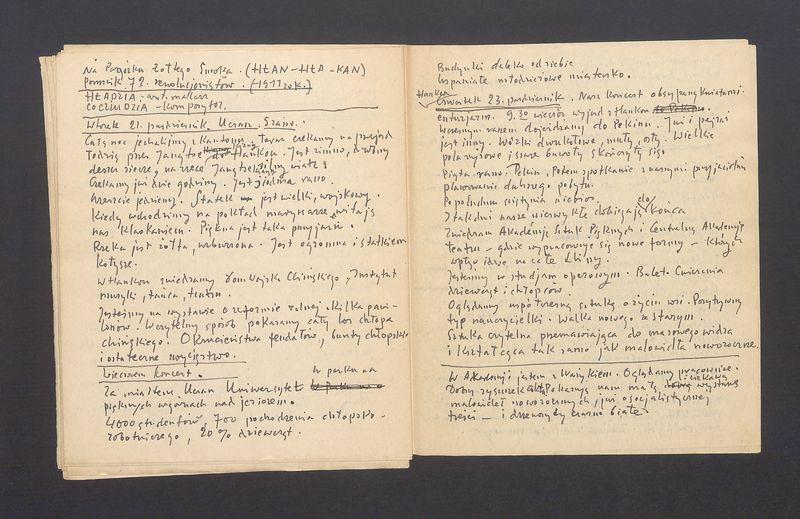 Na Pagórku Żółtego Smoka. (HŁAN-HŁA-KAN)
Pomnik 72 rewolucjonistów. (1911 rok.)
HŁADZIA - art. malarz
COCZUDZIA - kompozytor.
Wtorek 21. październik. Ucian, Szańo.
Całą noc jechaliśmy z Kantonu. Teraz czekamy na przejazd
łodzią przez Jangtse do Hankou. Jest zimno, drobny
deszcz siecze, na rzece Jangtse silny wiatr.
Czekamy już dwie godziny. Jest siódma rano.
Wreszcie jedziemy. Statek jest wielki, wojskowy.
Kiedy wchodzimy na pokład marynarze witają
nas klaskaniem. Piękna jest taka przyjaźń.
Rzeka jest żółta, wzburzona. Jest ogromna i statkiem
kołysze.
W Hankou zwiedzamy Dom Wojska Chińskiego, Instytut
muzyki, tańca, teatru.
Jesteśmy na wystawie o reformie rolnej. Kilka pawi-
lonów. W czytelny sposób pokazany cały los chłopa
chińskiego. Okrucieństwa feudałów, bunty chłopskie
i ostateczne zwycięstwo.
Wieczorem koncert.
Za miastem Ucian Uniwersytet w parku na
pięknych wzgórzach nad jeziorem.
4000 studentów, 700 pochodzenia chłopsko-
robotniczego, 20% dziewcząt.
Budynki daleko od siebie
Wspaniałe młodzieżowe miasteczko.
Hankou
Czwartek 23. październik. Nasz koncert obsypany kwiatami.
entuzjazm. 9.30 wieczór wyjazd z Hankou
Wczesnym ranem dojeżdżamy do Pekinu. Już i pejzaż
jest inny. Wózki dwukołowe, muły, osły. Wielkie
pola ryżowe i szare bawoły skończyły się.
Piąta rano: Pekin. Potem spotkanie z naszymi przyjaciółmi
planowanie dalszego pobytu.
Popołudniu świątynia niebios.
I tak dni nasze niezwykłe dobiegają do końca
Zwiedzam Akademię Sztuk Pięknych i Centralną Akademię
teatru - gdzie wypracowuje się nowe formy - których
wpływ idzie na całe Chiny.
Jesteśmy w studjum operowym. Baletu Ćwiczenia
dziewcząt i chłopców.
Oglądamy współczesną sztukę o życiu wsi. Pozytywny
typ nauczycielki. Walka nowego ze starym.
Sztuka czytelna przemawiająca do masowego widza
i kształcąca tak samo jak malowidła nowoczesne.
W Akademji jestem z Ważykiem. Oglądamy pracownie.
Dobry rysunek aktu. Pokazują nam małą i ciekawą wystawę
malowideł nowoczesnych, już o socjalistycznej
treści - i drzeworyty czarno białe.